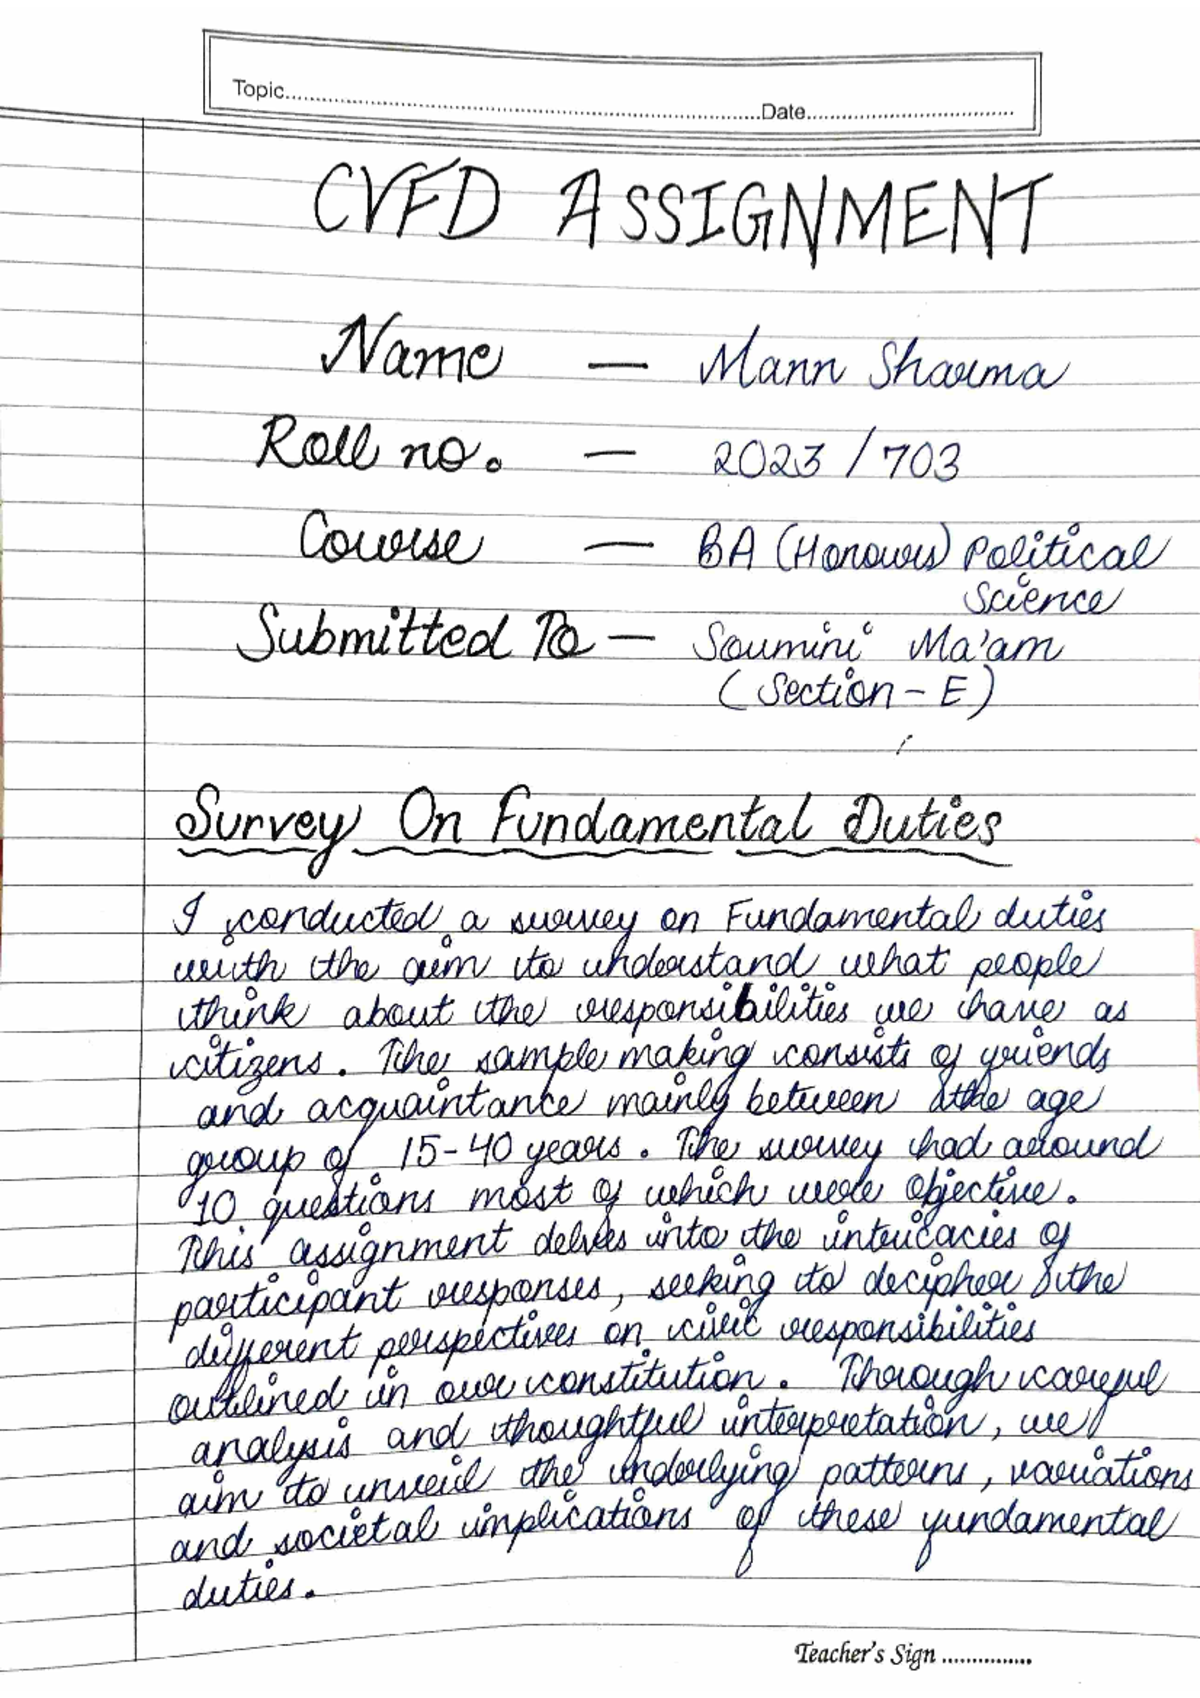 Topic..........Date..........
CVFD ASSIGNMENT
Name — Mann Sharma
Roll no. — 2023/703
Course — BA (Honours) Political
Science
Submitted To — Soumini Ma'am
(Section - E)
Survey On Fundamental Duties
I conducted a survey on Fundamental duties
with the aim to understand what people
think about the responsibilities we have as
citizens. The sample making consists of friends
and acquaintance mainly between the age
group of 15-40 years. The survey had around
10 questions most of which were objective.
This assignment delves into the intricacies of
participant responses, seeking to decipher the
different perspectives on civic responsibilities
outlined in our constitution. Through careful
analysis and thoughtful interpretation, we
aim to unveil the underlying patterns, variations
and societal implications of these fundamental
duties.
Teacher's Sign ...............